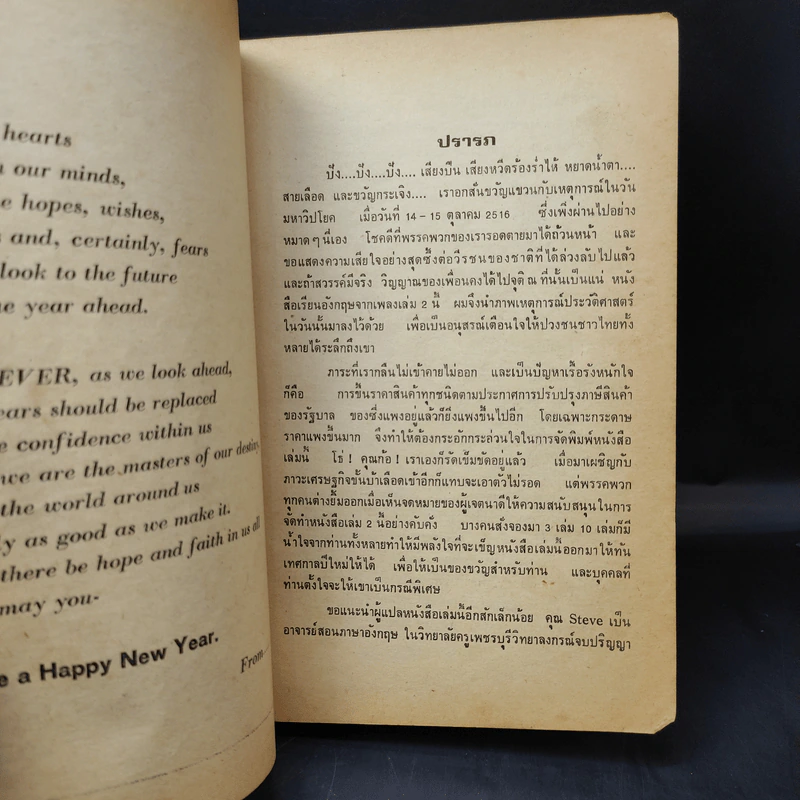 hearts
our minds,
hopes, wishes,
and, certainly, fears
look to the future
year ahead.
EVER, as we look ahead,
should be replaced
confidence within us
we are the masters of our destiny,
the world around us
as good as we make it.
there be hope and faith in us all
may you-
a Happy New Year.
From
ปรารภ
ปัง....ปัง....ปัง.... เสียงปืน เสียงหวีดร้องร่ำไห้ หยาดน้ำตา....
สายเลือด และขวัญกระเจิง.... เราอกสั่นขวัญแขวนกับเหตุการณ์ในวัน
มหาวิปโยค เมื่อวันที่ 14 – 15 ตุลาคม 2516 ซึ่งเพิ่งผ่านไปอย่าง
หมาดๆนี่เอง โชคดีที่พรรคพวกของเรารอดตายมาได้ถ้วนหน้า และ
ขอแสดงความเสียใจอย่างสุดซึ้งต่อวีรชนของชาติที่ได้ล่วงลับไปแล้ว
และถ้าสวรรค์มีจริง วิญญาณของเพื่อนคงได้ไปจุติ ณ ที่นั้นเป็นแน่ หนัง
สือเรียนอังกฤษจากเพลงเล่ม 2 นี้ ผมจึงนำภาพเหตุการณ์ประวัติศาสตร์
ในวันนั้นมาลงไว้ด้วย เพื่อเป็นอนุสรณ์เตือนใจให้ปวงชนชาวไทยทั้ง
หลายได้ระลึกถึงเขา
ภาระที่เรากลืนไม่เข้าคายไม่ออก และเป็นปัญหาเรื้อรังหนักใจ
ก็คือ การขึ้นราคาสินค้าทุกชนิดตามประกาศการปรับปรุงภาษีสินค้า
ของรัฐบาล ของซึ่งแพงอยู่แล้วก็ยิ่งแพงขึ้นไปอีก โดยเฉพาะกระดาษ
ราคาแพงขึ้นมาก จึงทำให้ต้องกระอักกระอ่วนใจในการจัดพิมพ์หนังสือ
เล่มนี้ โธ่! คุณก้อ! เราเองก็รัดเข็มขัดอยู่แล้ว เมื่อมาเผชิญกับ
ภาวะเศรษฐกิจขั้นบ้าเลือดเข้าอีกก็แทบจะเอาตัวไม่รอด แต่พรรคพวก
ทุกคนต่างยิ้มออกเมื่อเห็นจดหมายของผู้เจตนาดีให้ความสนับสนุนในการ
จัดทำหนังสือเล่ม 2 นี้อย่างคับคั่ง บางคนสั่งจองมา 3 เล่ม 10 เล่มก็มี
น้ำใจจากท่านทั้งหลายทำให้มีพลังใจที่จะเข็ญหนังสือเล่มนี้ออกมาให้ทัน
เทศกาลปีใหม่ให้ได้ เพื่อให้เป็นของขวัญสำหรับท่าน และบุคคลที่
ท่านตั้งใจจะให้เขาเป็นกรณีพิเศษ
ขอแนะนำผู้แปลหนังสือเล่มนี้อีกสักเล็กน้อย คุณ Steve เป็น
อาจารย์สอนภาษาอังกฤษ ในวิทยาลัยครูเพชรบุรีวิทยาลงกรณ์จบปริญญา